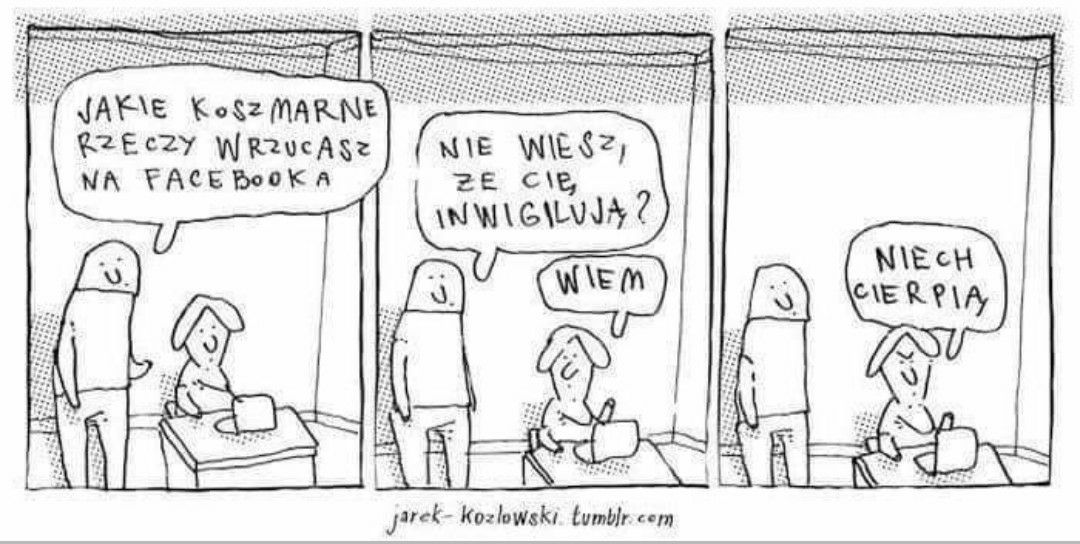 JAKIE KOSZMARNE
RZECZY WRZUCASZ
NA FACEBOOKA
NIE WIESZ,
ŻE CIĘ
INWIGILUJĄ?
WIEM
NIECH
CIERPIĄ
jarek-kozlowski.tumblr.com